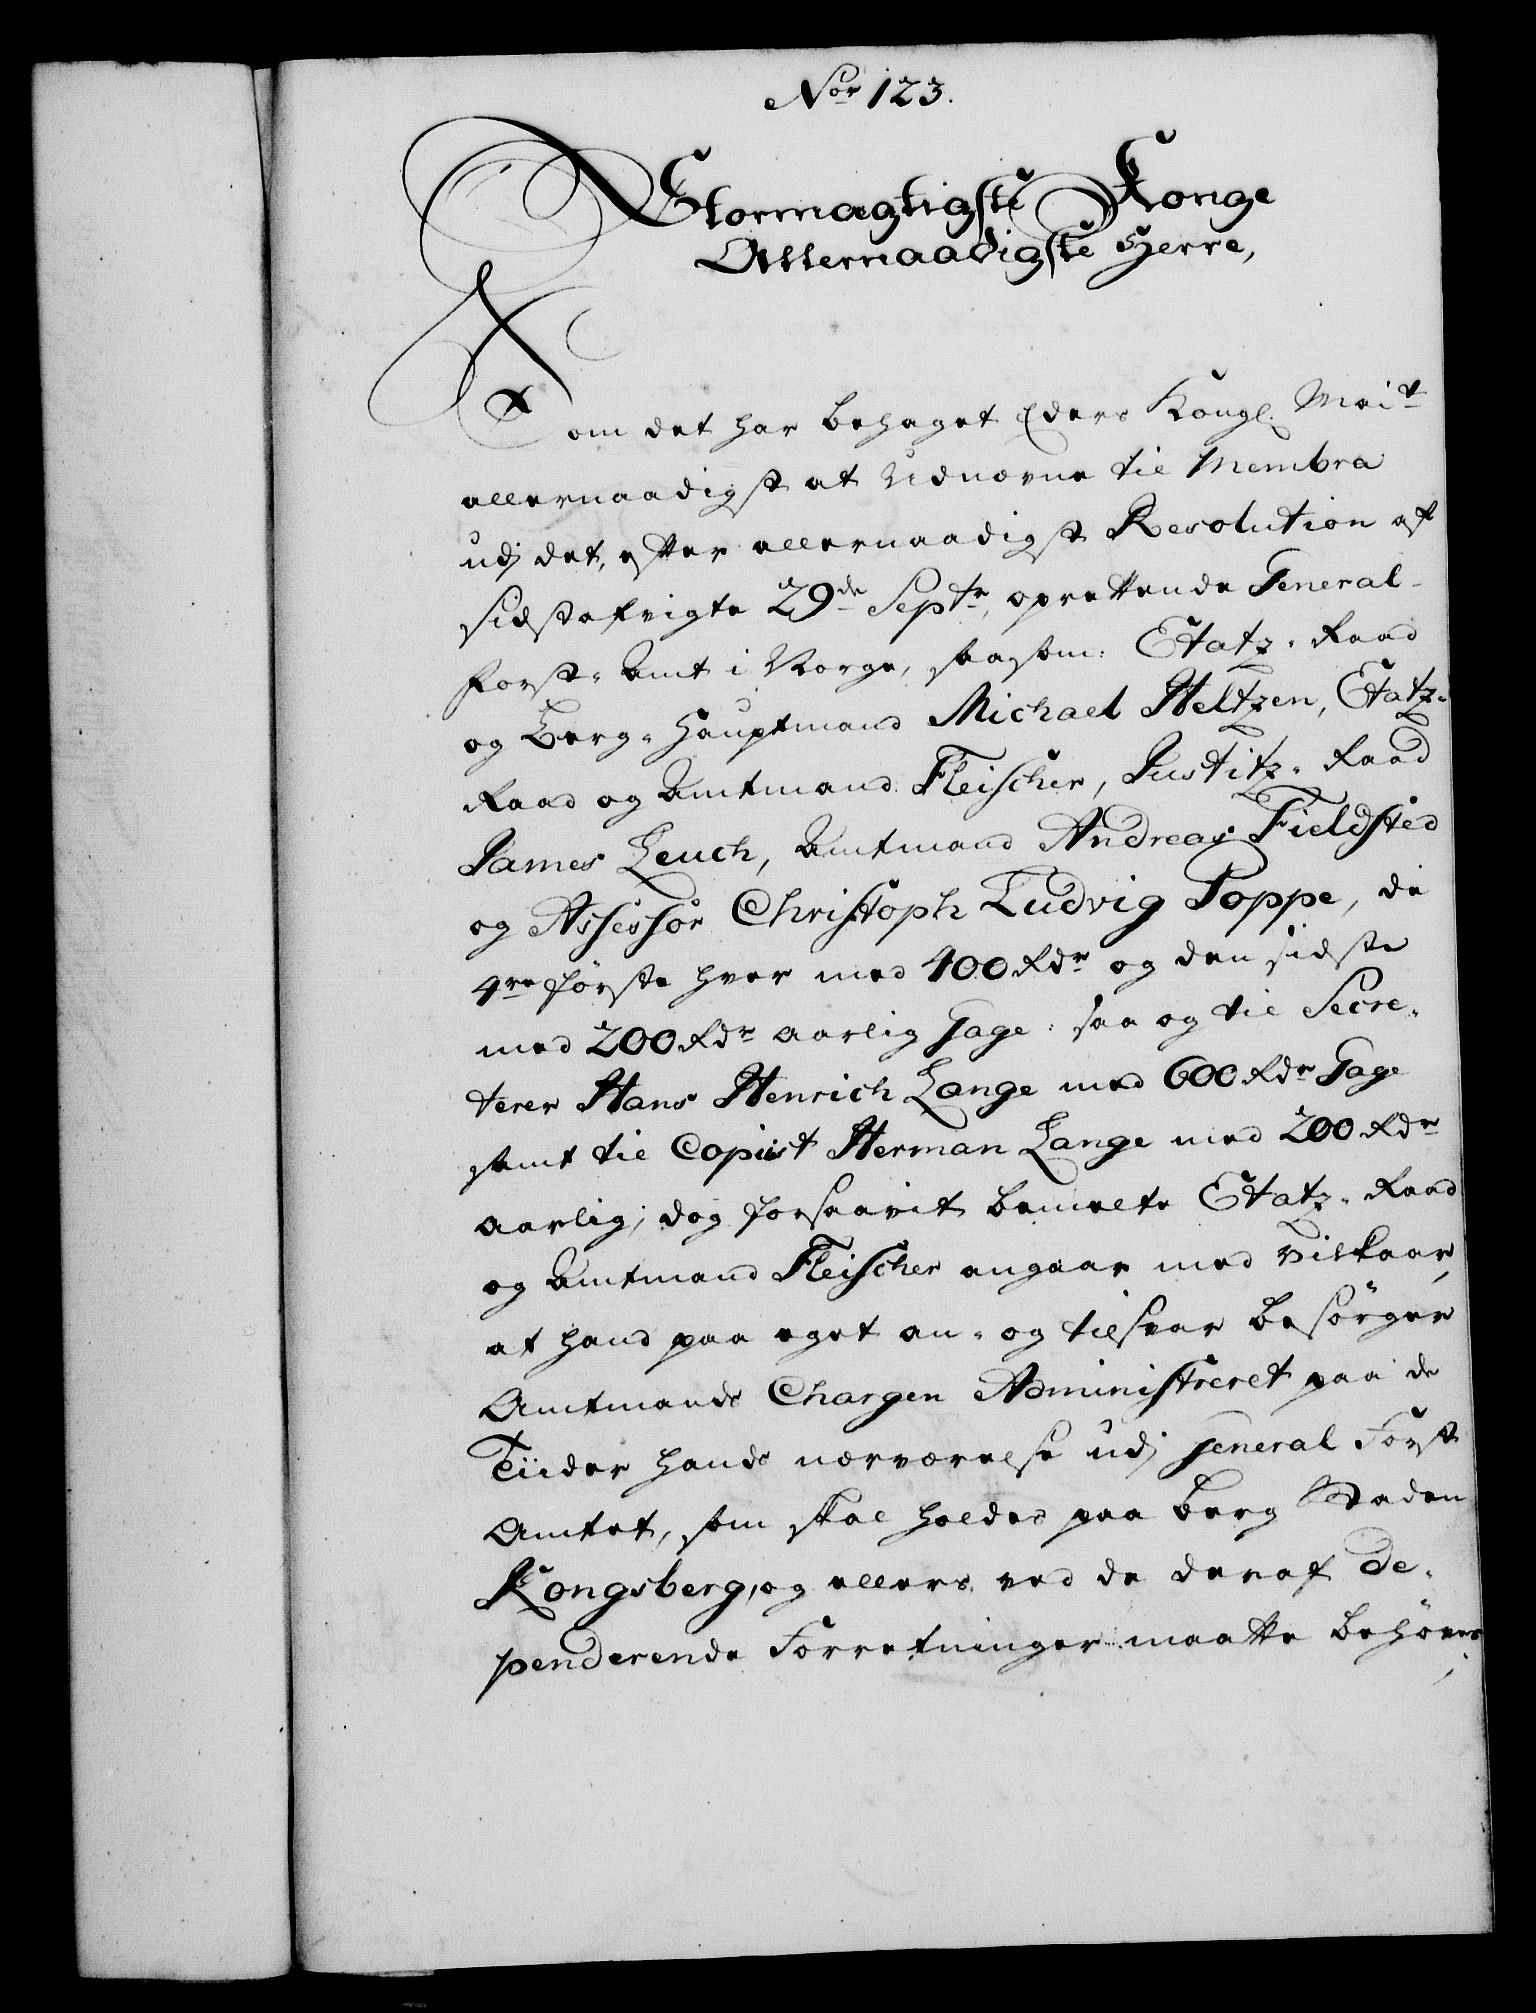 Nor 123.
Stormægtigste Konge
Allernaadigste Herre,
Som det har behaget Eders Kongl. Mait
allernaadigst at Udnævne til Membra
udj det, efter allernaadigst Resolution af
sidstafvigte 29de Septr, oprettende General-
Forst-Amt i Norge, saasom: Etatz-Raad
og Berg-Hauptmand Michael Heltzen, Etatz-
Raad og Amtmand Fleischer, Justitz-Raad
James Leuch, Amtmand Andreas Fieldsted
og Assessor Christoph Ludvig Poppe, de
4re første hver med 400 Rdr og den sidste
med 200 Rdr aarlig Gage: saa og til Secre-
terer Hans Henrich Lange med 600 Rdr Gage
samt til Copiist Herman Lange med 200 Rdr
aarlig; dog forsaavit bemelte Etatz-Raad
og Amtmand Fleischer angaar med Vilkaar,
at hand paa eget an- og tilsvar besørger
Amtmands Chargen Administreret paa de
Tiider hands nærværelse udj General Forst
Amtet, som skal holdes paa Berg Staden
Kongsberg, og ellers ved de deraf De-
penderende Forretninger maatte behøves,